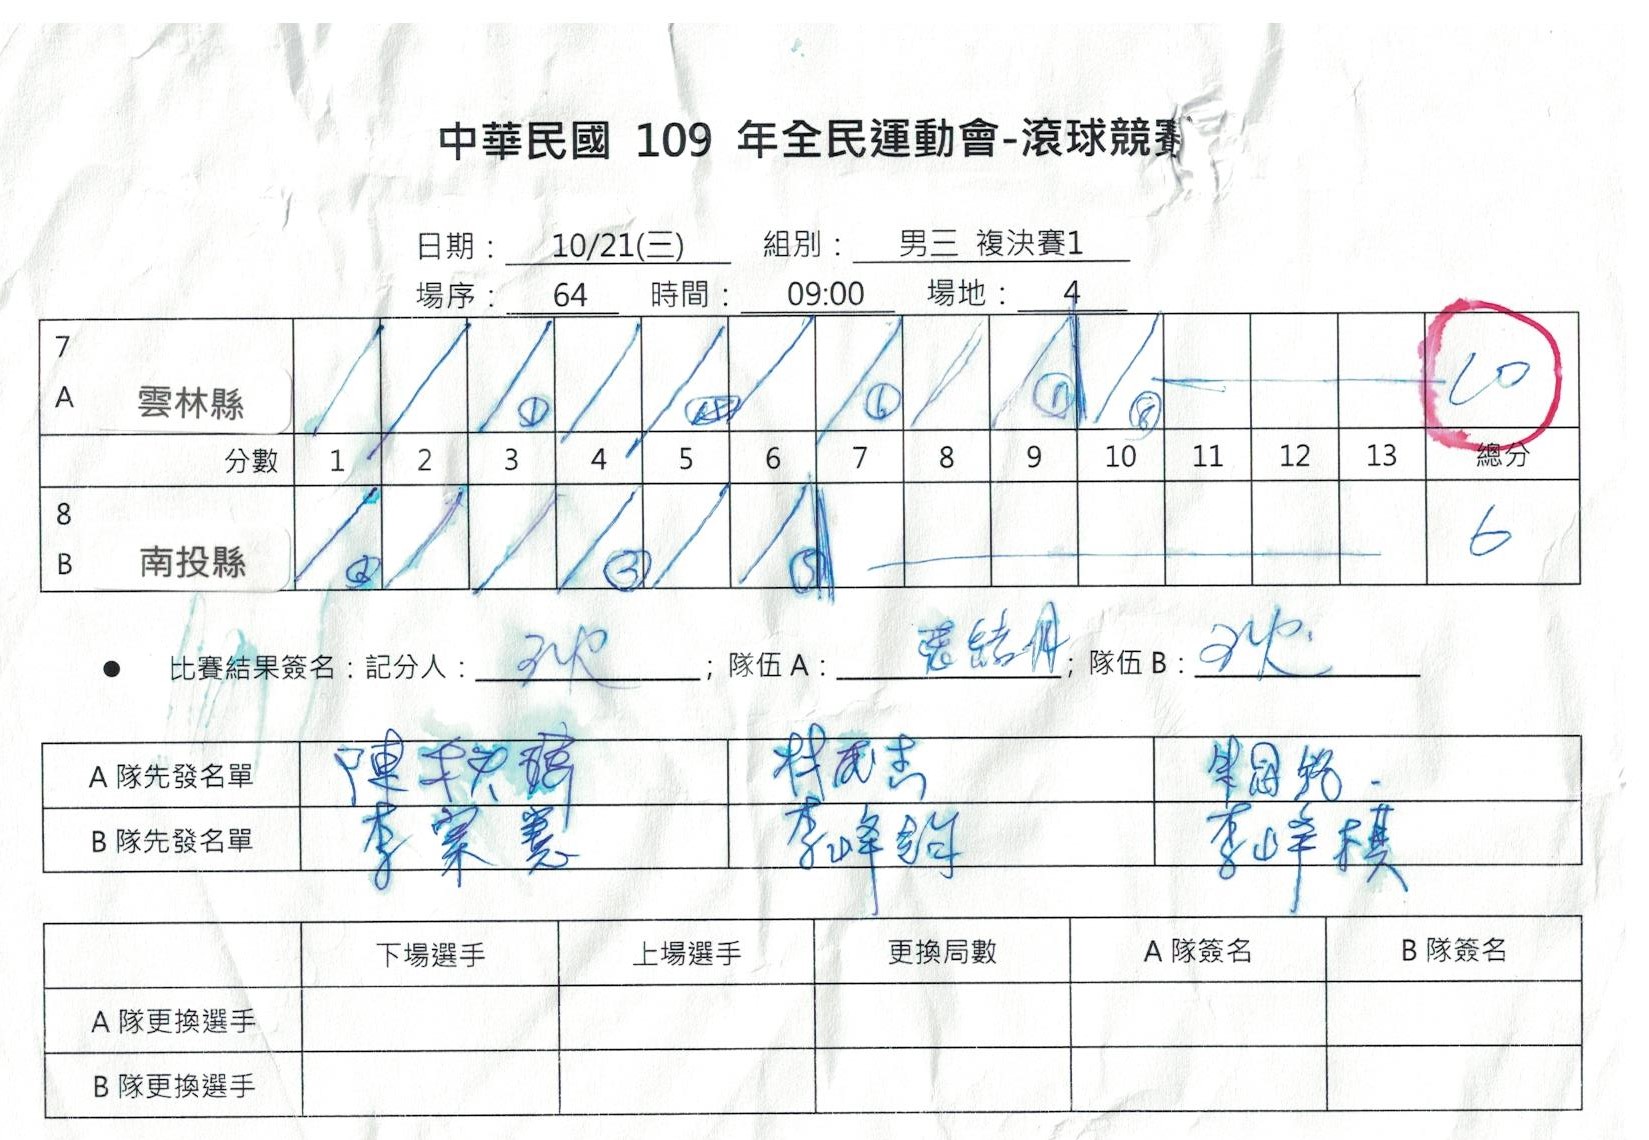 中華民國 109 年全民運動會-滾球競賽
日期： 10/21(三) 組別： 男三 複決賽1
場序： 64 時間： 09:00 場地： 4
7
A 雲林縣 ① ⑥ ⑦ ⑧ 10
分數 1 2 3 4 5 6 7 8 9 10 11 12 13 總分
8
B 南投縣 ② ③ ⑤ 6
● 比賽結果簽名：記分人： ；隊伍 A： ；隊伍 B：
A 隊先發名單 陳 林
B 隊先發名單 李 李峰 李峰棋
下場選手 上場選手 更換局數 A 隊簽名 B 隊簽名
A 隊更換選手
B 隊更換選手